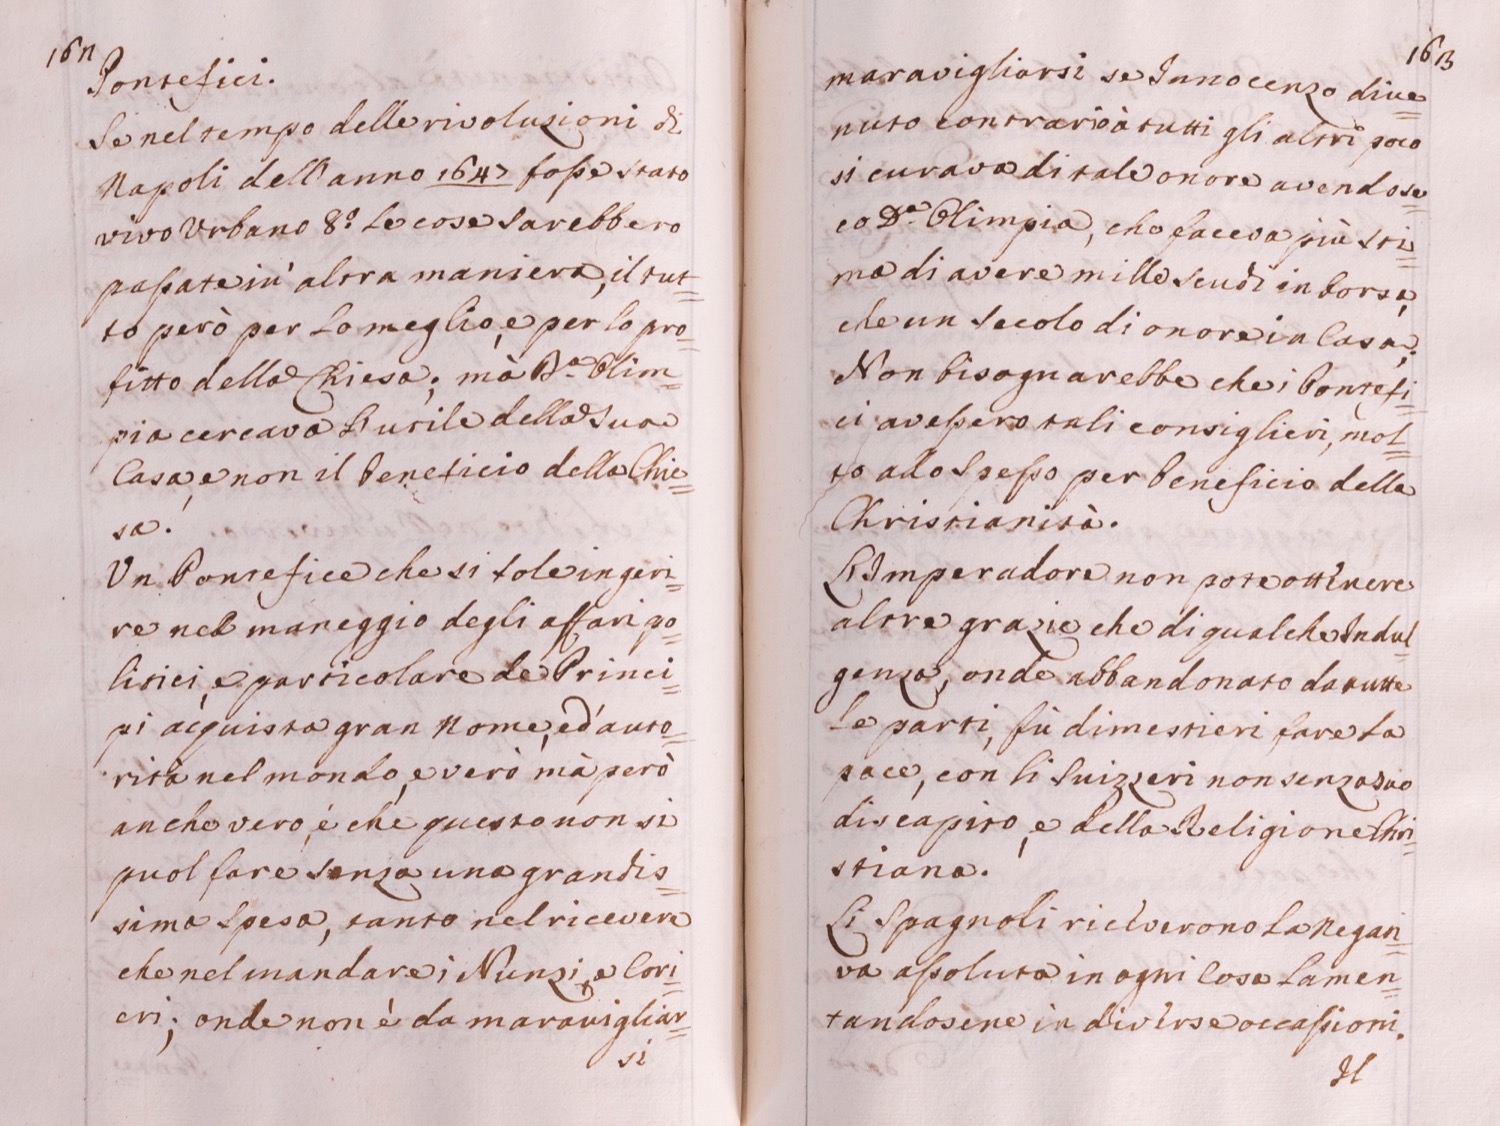 162
Pontefici.
Se nel tempo delle rivoluzioni di
Napoli dell'anno 1647 fosse stato
vivo Urbano 8º le cose sarebbero
passate in altra maniera, il tut=
to però per lo meglio, e per lo pro=
fitto della Chiesa; mà Dª Olim=
pia cercava l'utile della sua
Casa, e non il beneficio della Chie=
sa.
Un Pontefice che si vole ingeri=
re nel maneggio degli affari po=
litici, e particolare de Princi=
pi acquista gran Nome, ed auto=
rità nel mondo, e verò mà però
anche vero, é che questo non si
puol fare senza una grandis=
sima spesa, tanto nel ricevere
che nel mandare i Nunzi, e Cori=
eri; onde non è da maravigliar=
si
163
maravigliarsi se Innocenzo dive=
nuto contrario à tutti gli altri poco
si curava di tale onore avendo se=
co Dª Olimpia, che faceva più sti=
ma di avere mille scudi in borsa,
che un secolo di onore in Casa;
Non bisognarebbe che i Pontefi=
ci avessero tali consiglieri, mol=
to ado spesso per beneficio della
Christianità.
L'Imperadore non pote ottenere
altre grazie che di qualche Indul=
genza, onde abbandonato da tutte
le parti, fù di mestieri fare la
pace, con li Suizzeri non senza suo
discapito, e della Religione Chri=
stiana.
Li Spagnoli riceverono la Negati=
va assoluta in ogni Cosa lamen=
tandosene in diverse occassioni.
Il